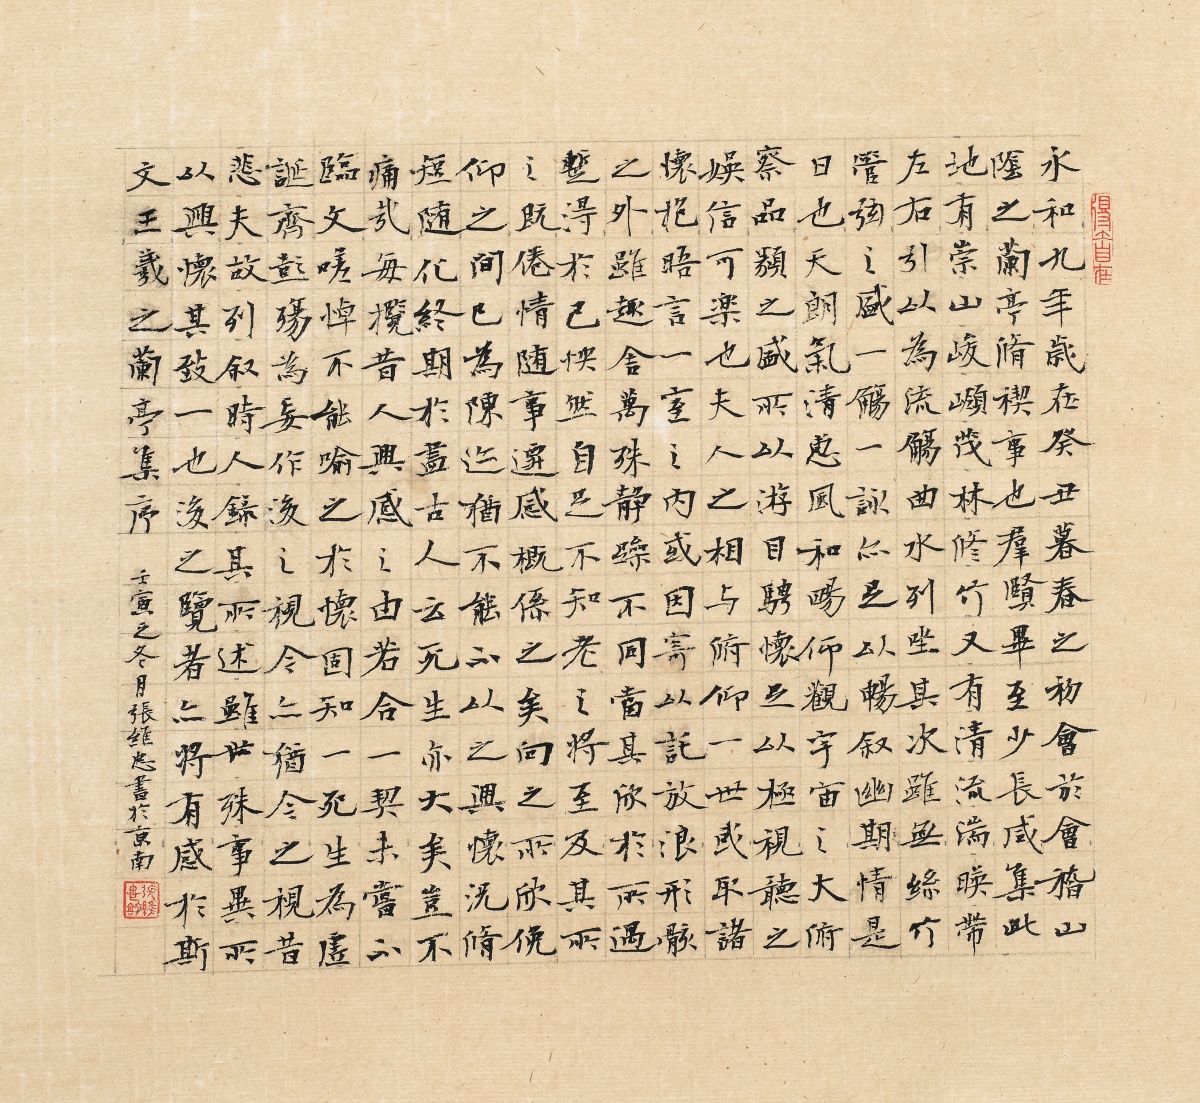 永和九年歲在癸丑暮春之初會於會稽山
陰之蘭亭脩禊事也羣賢畢至少長咸集此
地有崇山峻嶺茂林修竹又有清流湍暎帶
左右引以為流觴曲水列坐其次雖無絲竹
管弦之盛一觴一詠亦足以暢叙幽期情是
日也天朗氣清惠風和暢仰觀宇宙之大俯
察品類之盛所以游目騁懷足以極視聽之
娛信可樂也夫人之相与俯仰一世或取諸
懷抱晤言一室之內或因寄以託放浪形骸
之外雖趣舍萬殊静躁不同當其欣於所遇
暫得於己怏然自足不知老之將至及其所
之既倦情随事遷感概係之矣向之所欣俛
仰之間已為陳迹猶不能不以之興懷況脩
短随化終期於盡古人云死生亦大矣豈不
痛哉每攬昔人興感之由若合一契未嘗不
臨文嗟悼不能喻之於懷固知一死生為虛
誕齊彭殤為妄作後之視今亦猶今之視昔
悲夫故列叙時人録其所述雖世殊事異所
以興懷其致一也後之覽者亦將有感於斯
文王羲之蘭亭集序
壬寅之冬月張維忠書於京南
得大自在